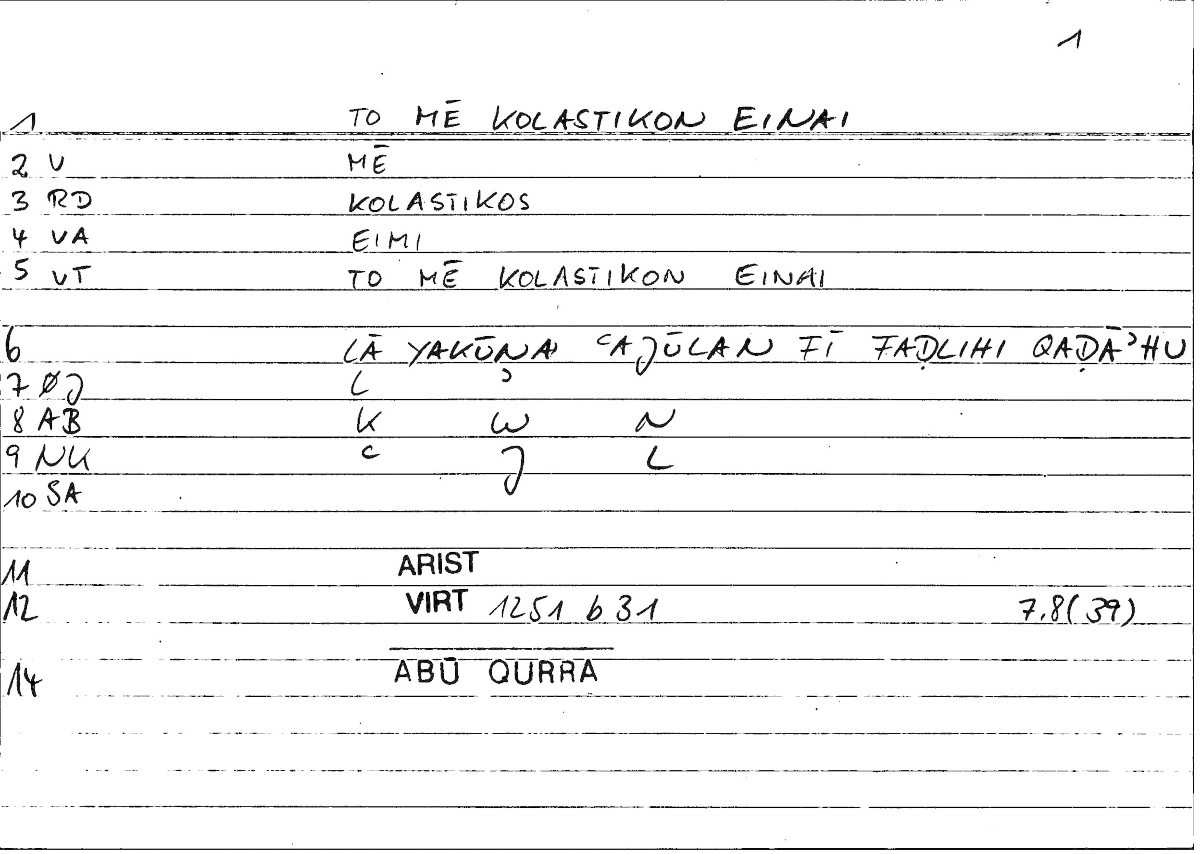 1
1 TO MĒ KOLASTIKON EINAI
2 V MĒ
3 RD KOLASTIKOS
4 VA EIMI
5 VT TO MĒ KOLASTIKON EINAI
6 LĀ YAKŪNA ʿAJŪLAN FĪ FAḌLIHI QAḌĀʾHU
7 ØJ L ʾ
8 AB K W N
9 NK ʿ J L
10 SA
11 ARIST
12 VIRT 1251 b 31 7.8(39)
14 ABŪ QURRA